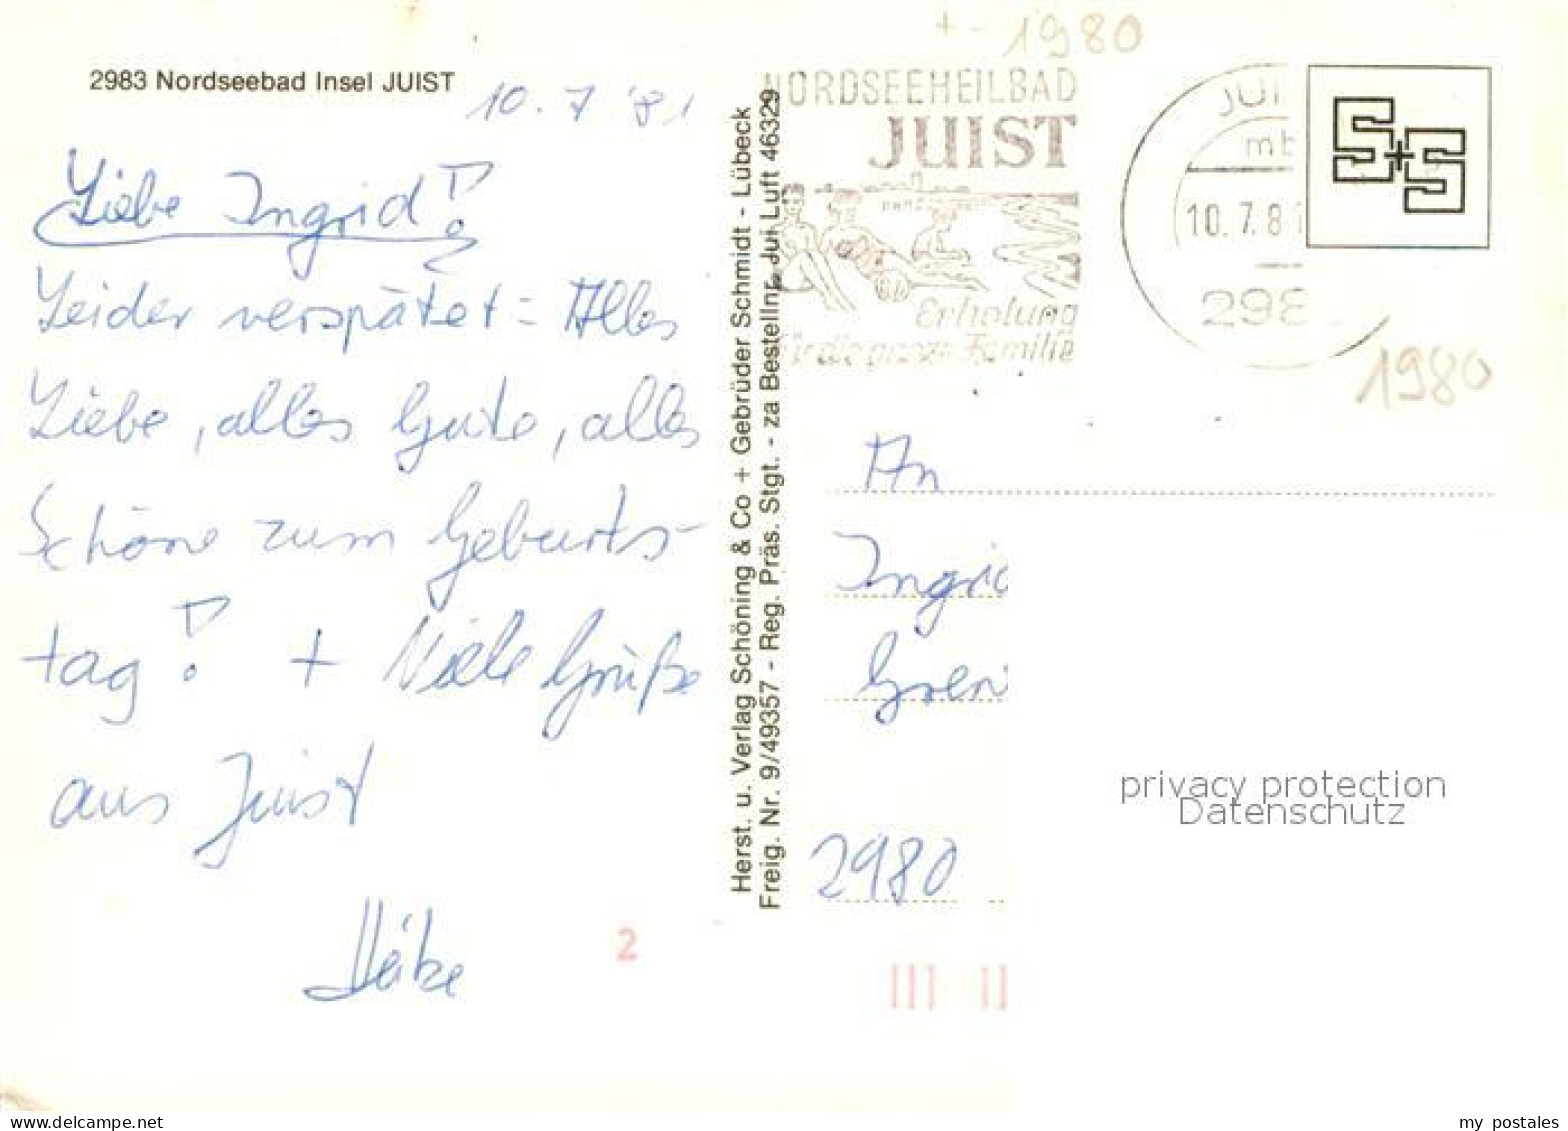 + - 1980
2983 Nordseebad Insel JUIST
10.7.'81
Liebe Ingrid!
Leider verspätet = Alles
Liebe, alles Gute, alles
Schöne zum Geburts-
tag! + Viele Grüße
aus Juist
2
Herst. u. Verlag Schöning & Co + Gebrüder Schmidt - Lübeck
Freig. Nr. 9/49357 - Reg. Präs. Stgt. - za Bestellnr. Jui Luft 46329
NORDSEEHEILBAD
JUIST
Erholung
für die ganze Familie
JUI
10.7.81
298
S+S
1980
An
Ingrid
Gren
2980
privacy protection
Datenschutz
my postales